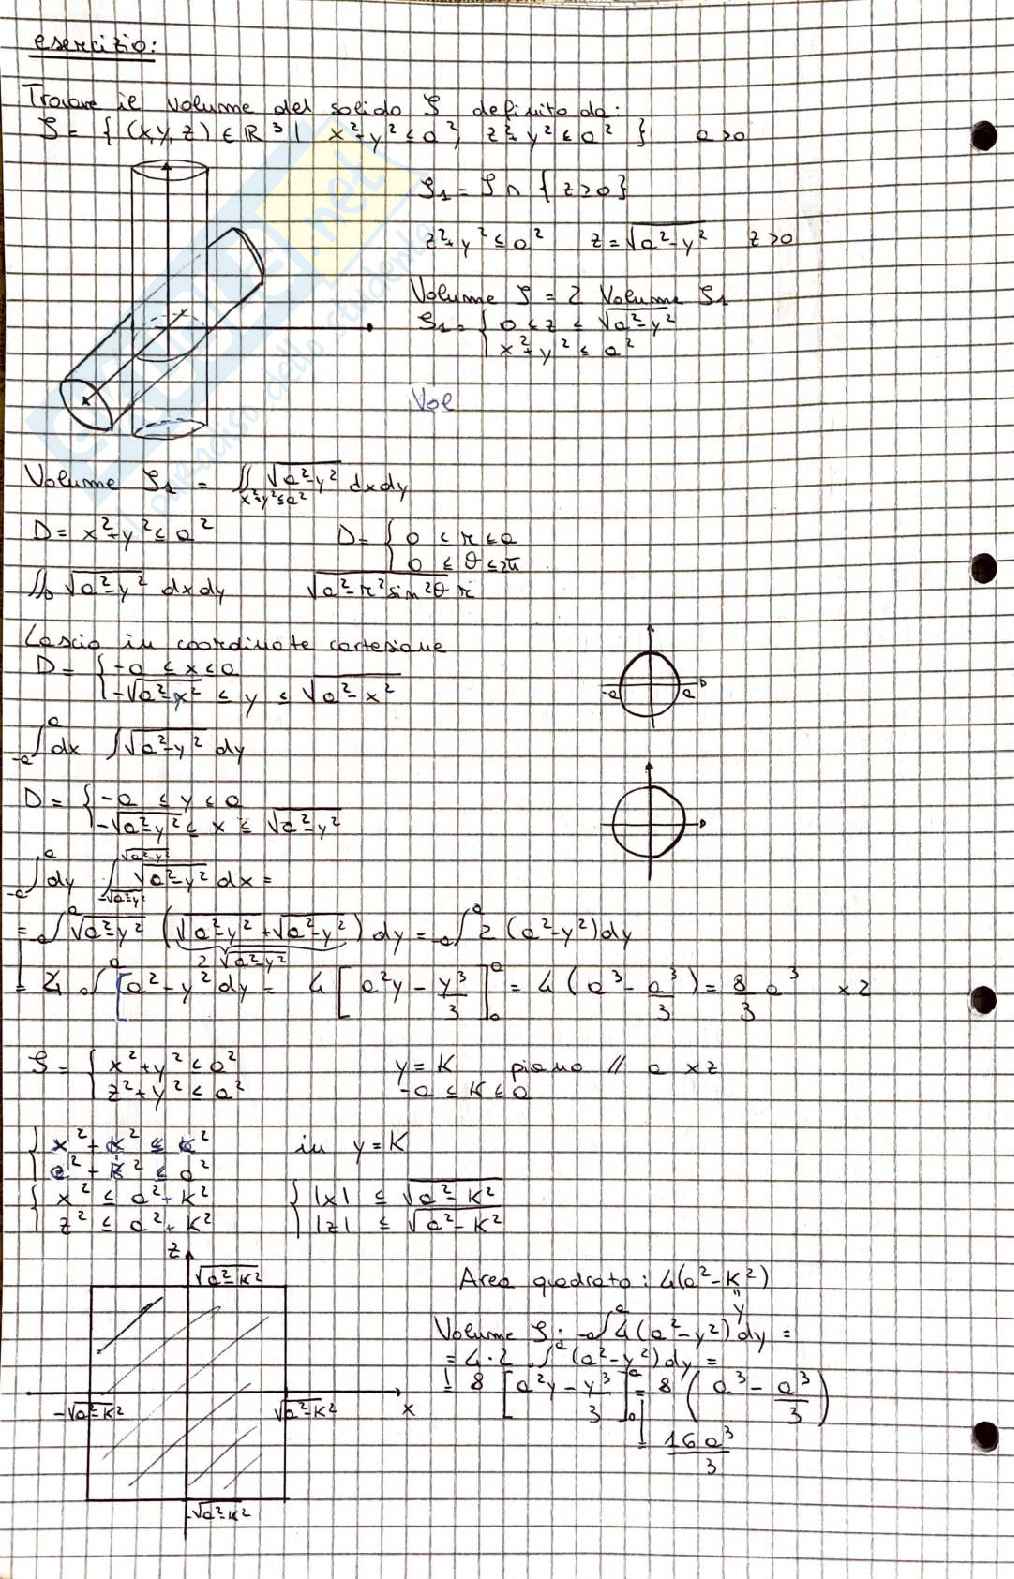 esercizio:
Trovare il volume del solido S definito da:
S = { (x,y,z) ∈ R³ | x²+y² ≤ a², z²+y² ≤ a² } a>0
S₁ = S ∩ { z>0 }
z²+y² ≤ a² z = √a²-y² z>0
Volume S = 2 Volume S₁
S₁ = { 0 < z ≤ √a²-y²
x²+y² ≤ a²
Vol
Volume S₁ = ∬ √a²-y² dxdy
x²+y²≤a²
D = x²+y² ≤ a² D = { 0 < r ≤ a
0 ≤ θ ≤ 2π
∬D √a²-y² dxdy √a²-r²sin²θ r
Lascio in coordinate cartesiane
D = { -a ≤ x ≤ a
-√a²-x² ≤ y ≤ √a²-x²
-a a
-a∫a dx ∫√a²-y² dy
D = { -a ≤ y ≤ a
-√a²-y² ≤ x ≤ √a²-y²
-a∫a dy -√a²-y²∫√a²-y² √a²-y² dx =
= -a∫a √a²-y² (√a²-y² + √a²-y²) dy = -a∫a 2 (a²-y²) dy
2√a²-y²
= 4 0∫a [a²-y² dy = 4 [a²y - y³/3]₀ᵃ = 4 (a³ - a³/3) = 8/3 a³ x2
S = { x²+y² ≤ a² y = K piano // a xz
z²+y² ≤ a² -a ≤ K ≤ a
{ x² + K² ≤ a² in y = K
z² + K² ≤ a²
{ x² ≤ a² + K² { |x| ≤ √a²-K²
z² ≤ a² + K² |z| ≤ √a²-K²
z
√a²-K² Area quadrato: 4(a²-K²)
"
y
Volume S: -a∫a 4(a²-y²) dy =
= 4·2 0∫a (a²-y²) dy =
= 8 [a²y - y³/3]₀ᵃ = 8 (a³ - a³/3)
-√a²-K² √a²-K² x
= 16a³/3
-√a²-K²